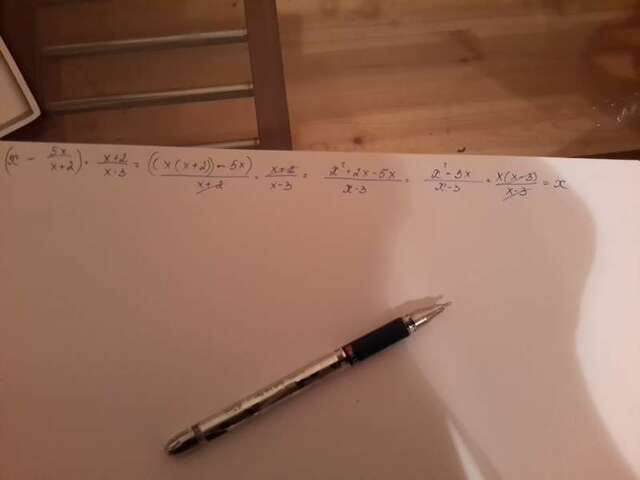 (x - 5x/x+2) · x+2/x-3 = ((x(x+2))-5x)/x+2 · x+2/x-3 = x²+2x-5x/x-3 = x²-3x/x-3 = x(x-3)/x-3 = x